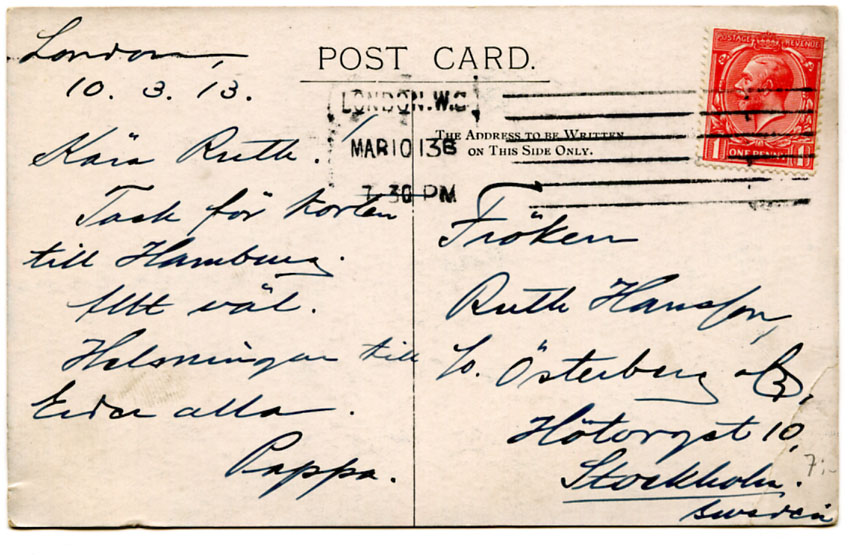 London,
10. 3. 13.
POST CARD.
LONDON.W.C
MAR 10 13
7.30 PM
THE ADDRESS TO BE WRITTEN
ON THIS SIDE ONLY.
POSTAGE REVENUE
ONE PENNY
1 1
Kära Ruth!
Tack för korten
till Hamburg.
Allt väl.
Helsningar till
Eder alla.
Pappa.
Fröken
Ruth Hansson,
Österberg
Hötorget 10,
Stockholm.
Sweden
7:-